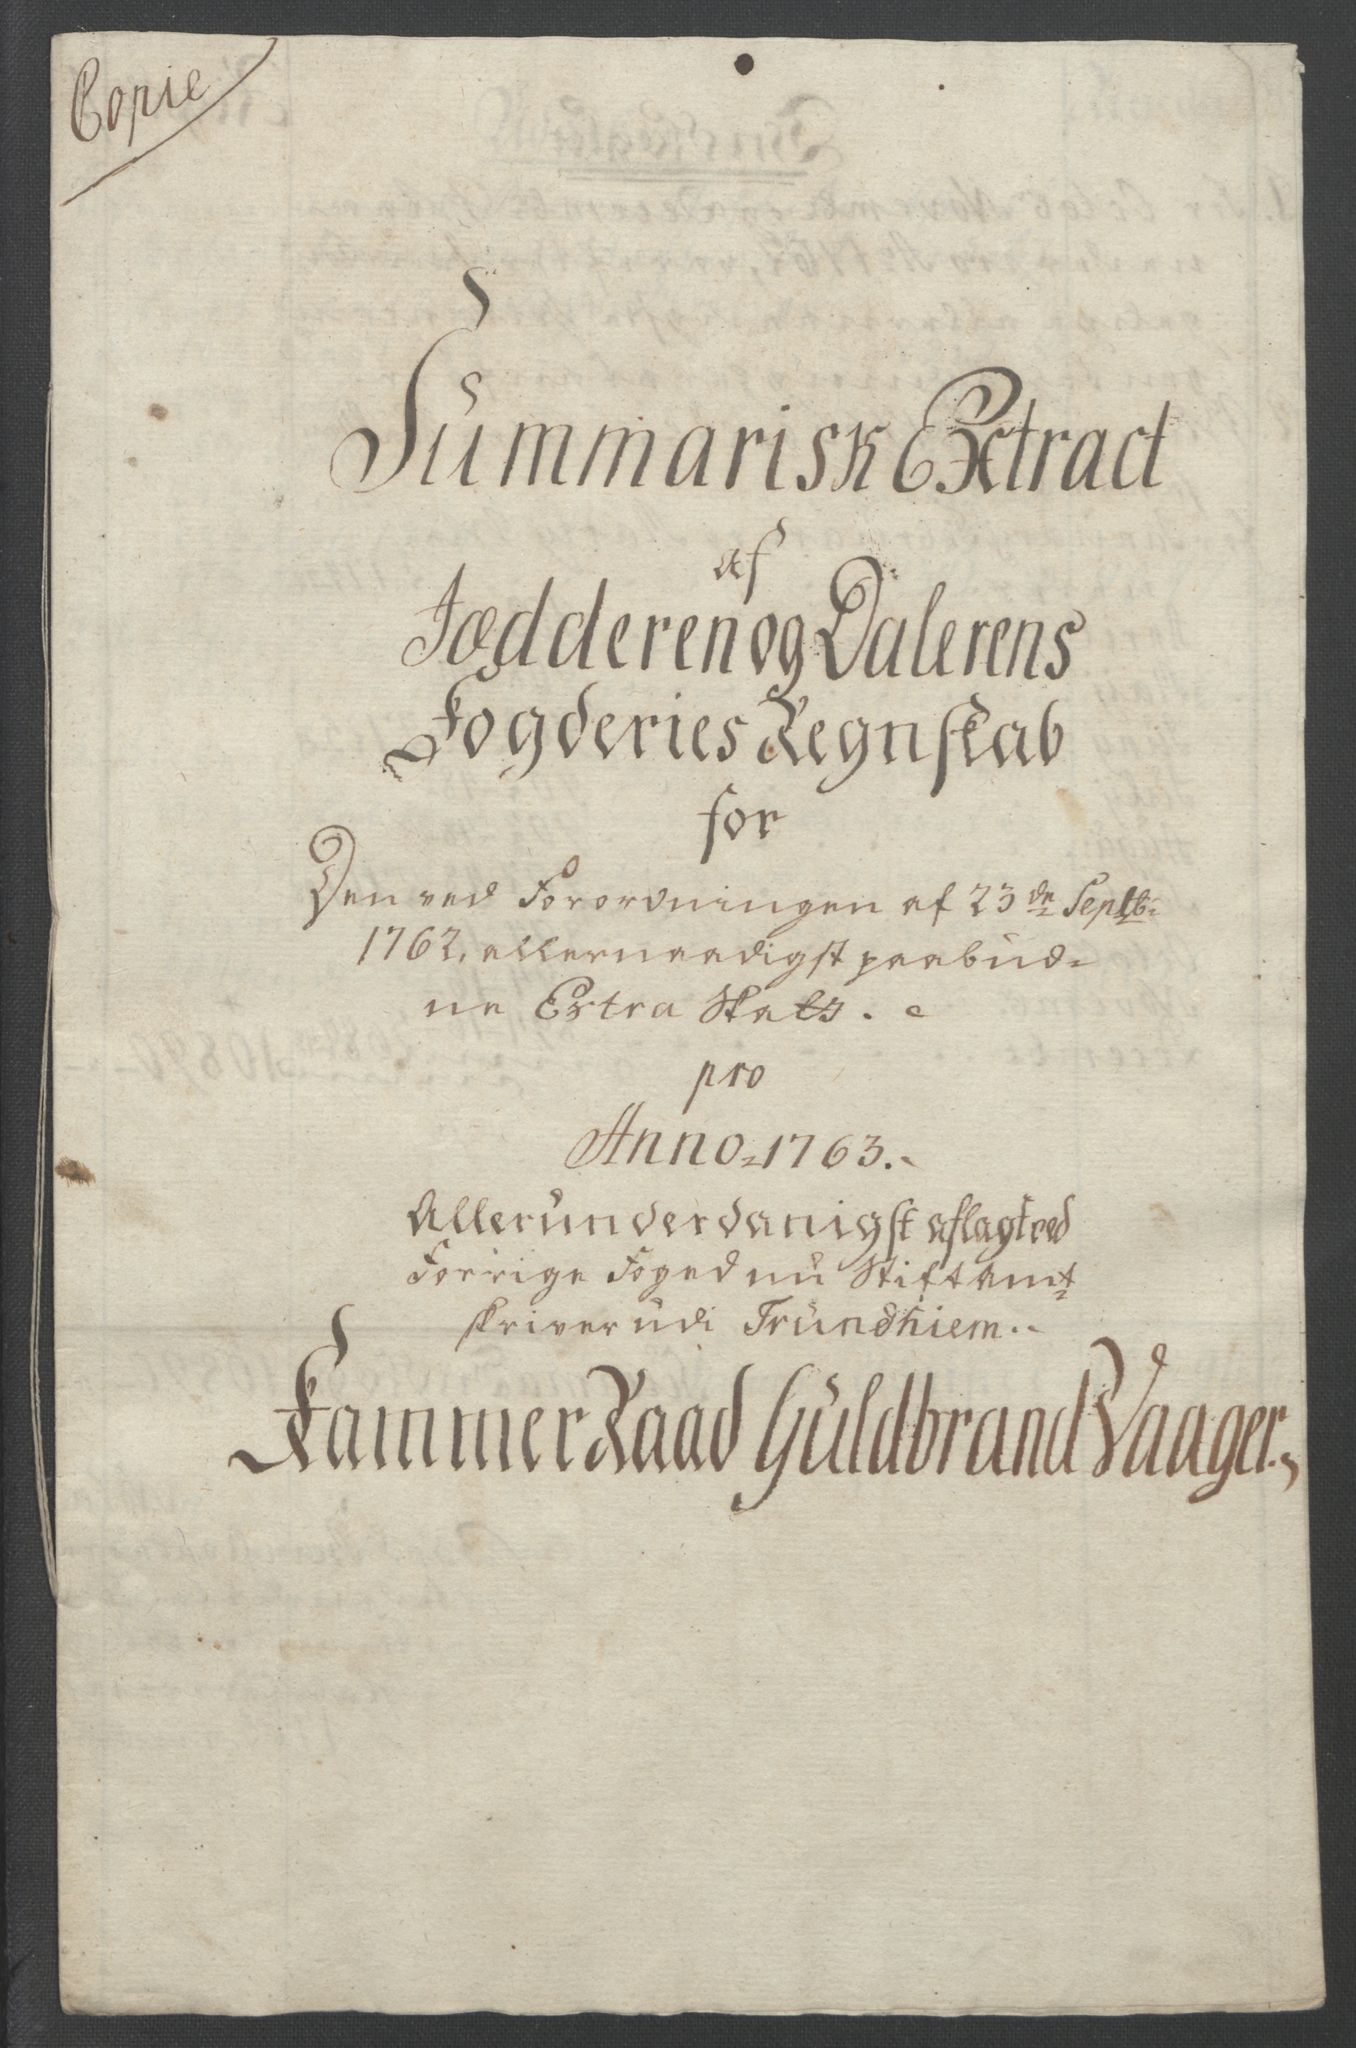 Copie
Summarisk Extract
af
Jædderen og Dalerens
Fogderies Regnskab
for
Den ved Forordningen af 23de Septb:
1762, allernaadigst paabud-
ne Extra Skatt.
pro
Anno 1763.
Allerunderdanigst aflagt ved
Forrige Foged nu Stiftamt
skriver udi Trundhiem.
Kammer Raad Guldbrand Vaager.